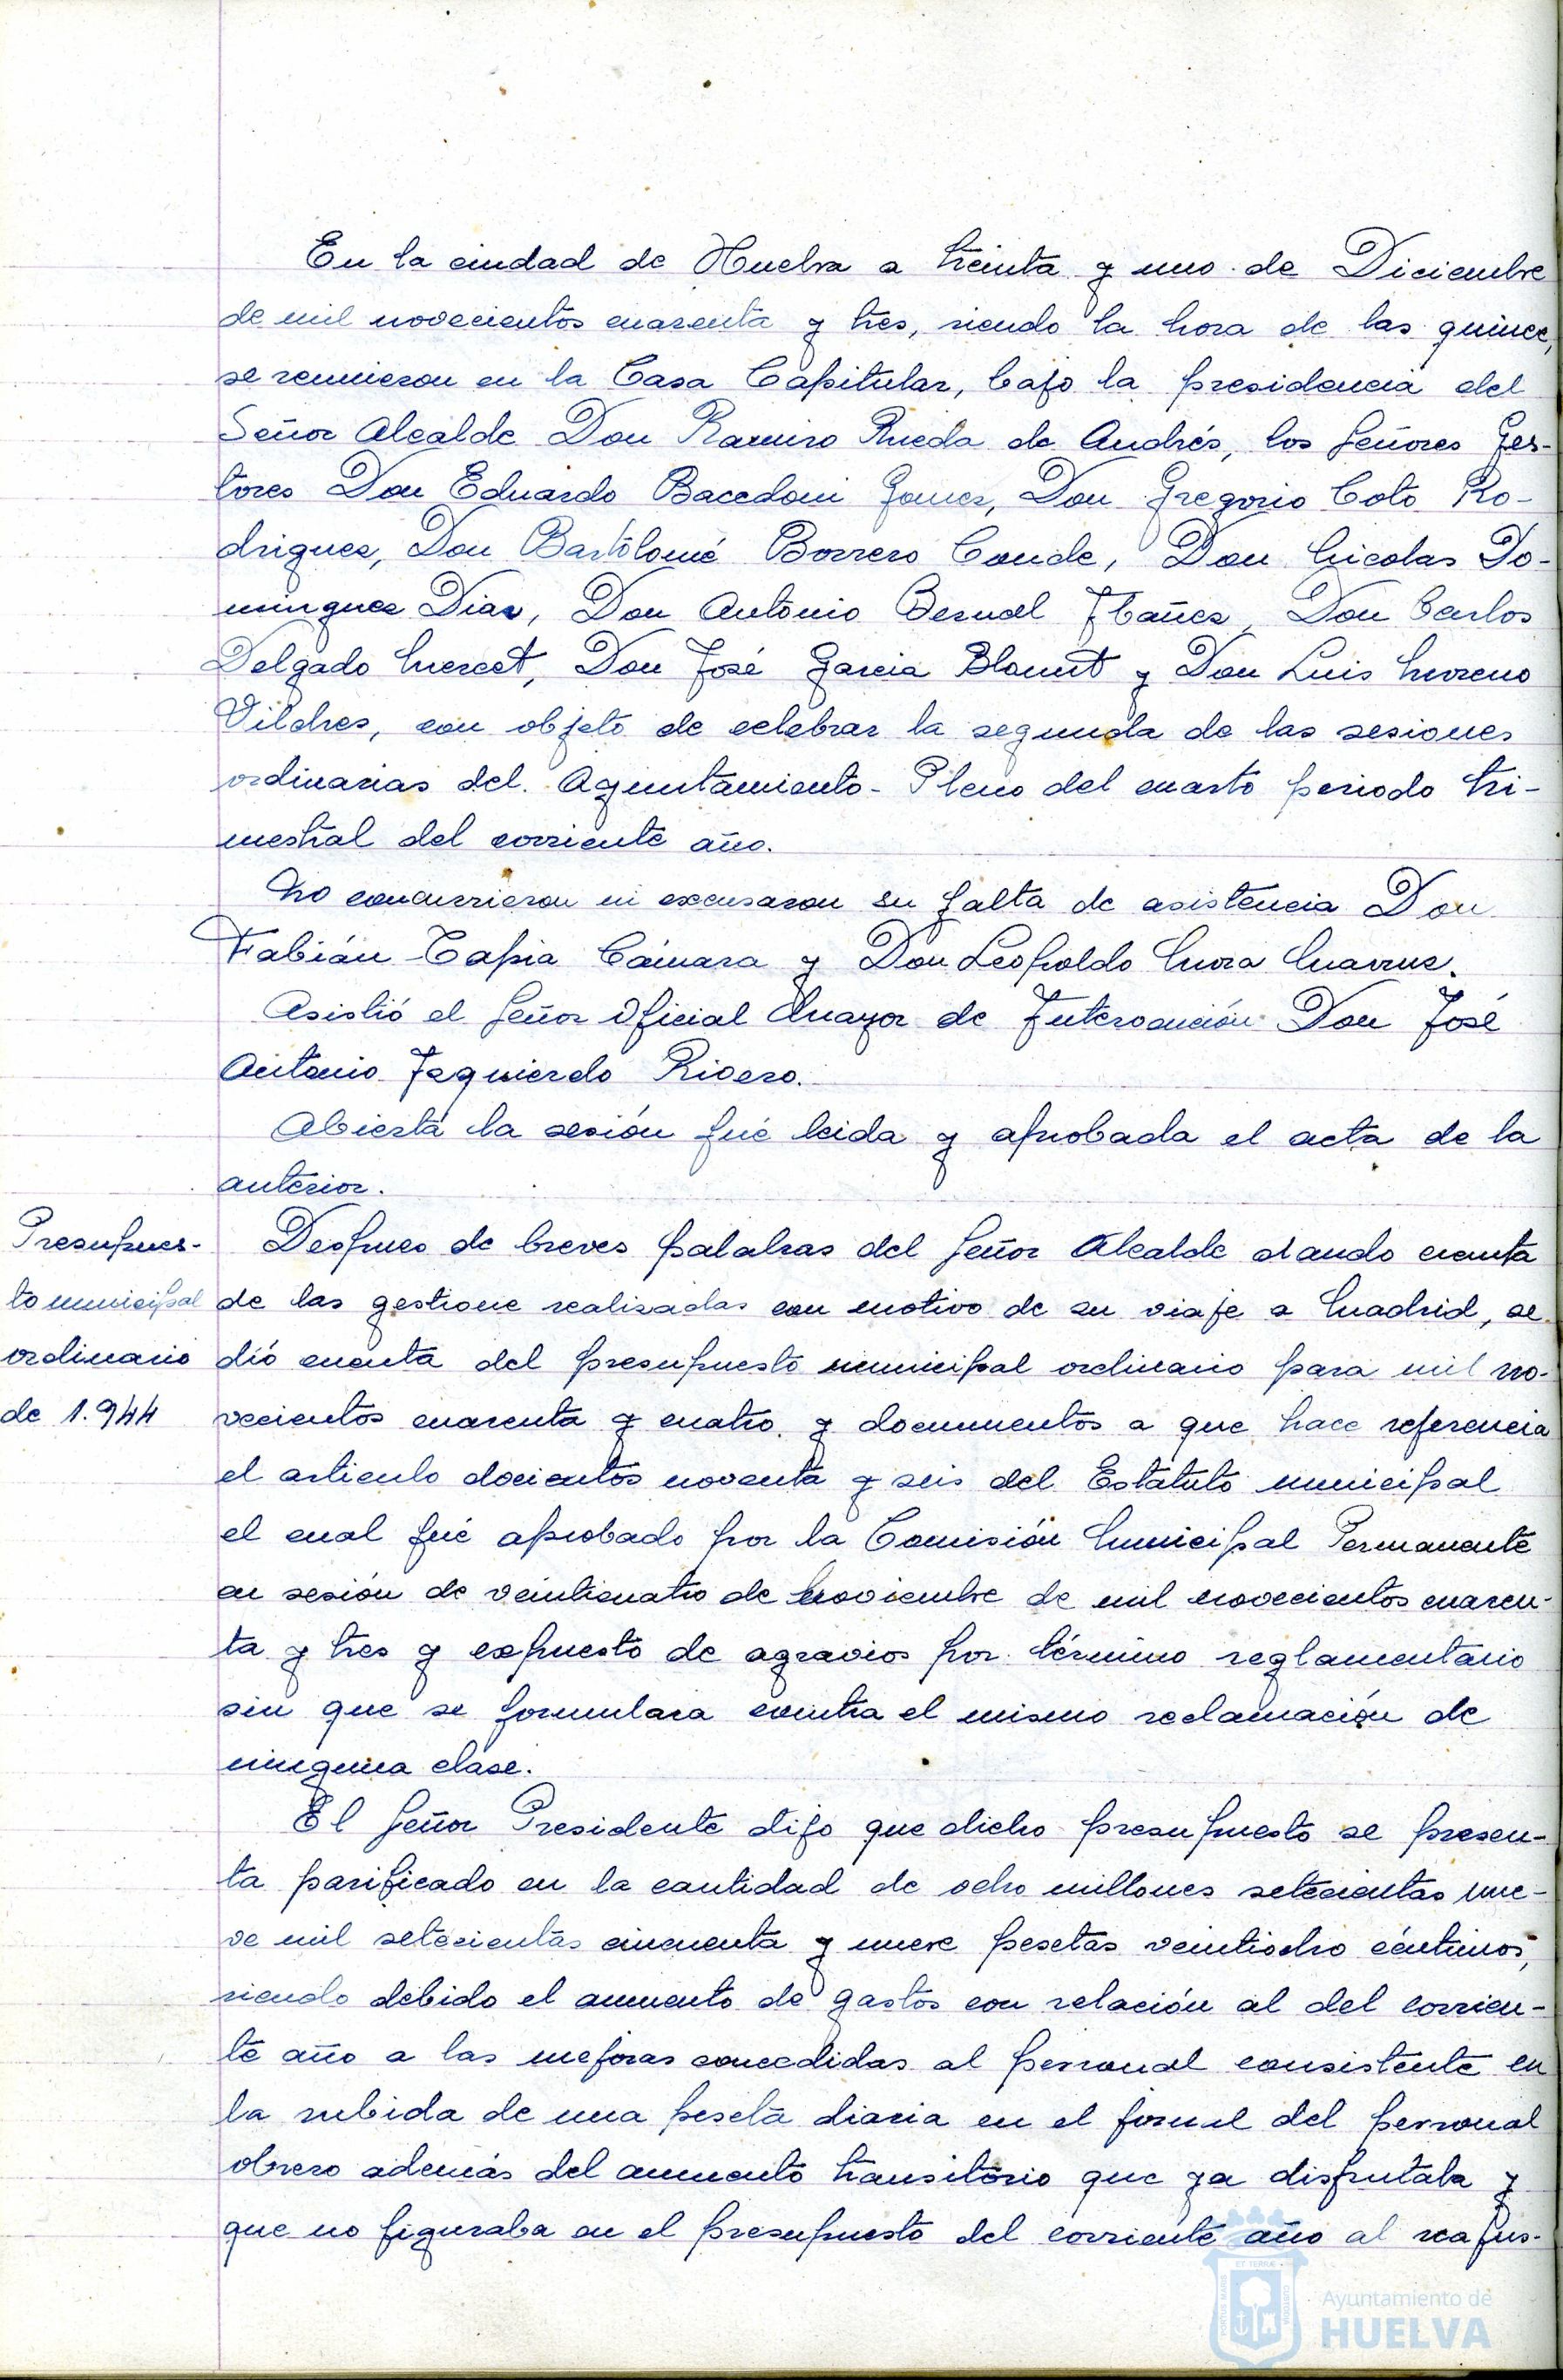 En la ciudad de Huelva a treinta y uno de Diciembre
de mil novecientos cuarenta y tres, siendo la hora de las quince,
se reunieron en la Casa Capitular, bajo la presidencia del
Señor Alcalde Don Ramiro Rueda de Andrés, los Señores Ges-
tores Don Eduardo Bacedoni Gomez, Don Gregorio Coto Ro-
driguez, Don Bartolomé Borrero Conde, Don Nicolas Do-
minguez Diaz, Don Antonio Bernal Ibañez, Don Carlos
Delgado Mercet, Don José Garcia Blount y Don Luis Moreno
Vilches, con objeto de celebrar la segunda de las sesiones
ordinarias del Ayuntamiento-Pleno del cuarto periodo tri-
mestral del corriente año.
No concurrieron ni excusaron su falta de asistencia Don
Fabián Tapia Cámara y Don Leopoldo Mora
Asistió el Señor Oficial Mayor de Intervención Don José
Antonio Izquierdo Rivero.
Abierta la sesión fué leida y aprobada el acta de la
anterior.
Presupues-
to municipal
ordinario
de 1.944
Despues de breves palabras del Señor Alcalde dando cuenta
de las gestione realizadas con motivo de su viaje a Madrid, se
dió cuenta del presupuesto municipal ordinario para mil no-
vecientos cuarenta y cuatro y documentos a que hace referencia
el articulo docientos noventa y seis del Estatuto municipal
el cual fué aprobado por la Comisión Municipal Permanente
en sesión de veinticuatro de Noviembre de mil novecientos cuaren-
ta y tres y expuesto de agravios por término reglamentario
sin que se formulara contra el mismo reclamación de
ninguna clase.
El Señor Presidente dijo que dicho presupuesto se presen-
ta parificado en la cantidad de ocho millones setecientas nue-
ve mil setecientas cincuenta y nueve pesetas veintiocho céntimos,
siendo debido el aumento de gastos con relación al del corrien-
te año a las mejoras concedidas al personal consistente en
la subida de una peseta diaria en el jornal del personal
obrero además del aumento transitorio que ya disfrutaba y
que no figuraba en el presupuesto del corriente año al reajus-
Ayuntamiento de
HUELVA